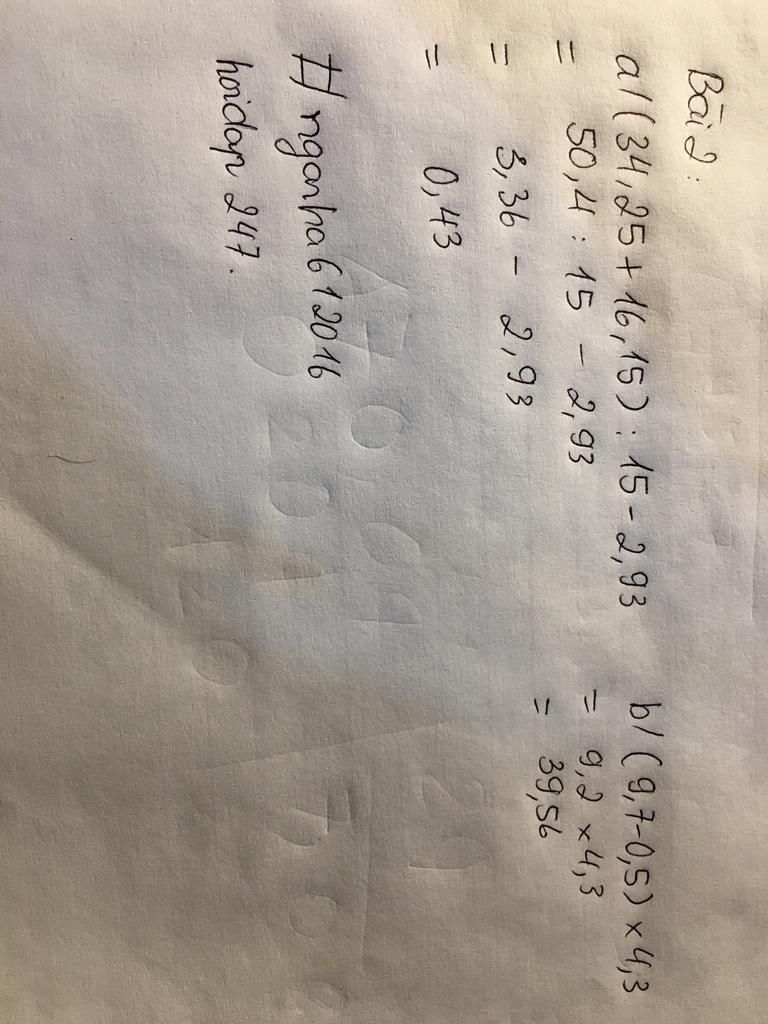 Bài 2:
a/(34,25+16,15):15-2,93
= 50,4 : 15 - 2,93
= 3,36 - 2,93
= 0,43
b/(9,7-0,5)×4,3
= 9,2 ×4,3
= 39,56
# nganha612016
hoidap 247.